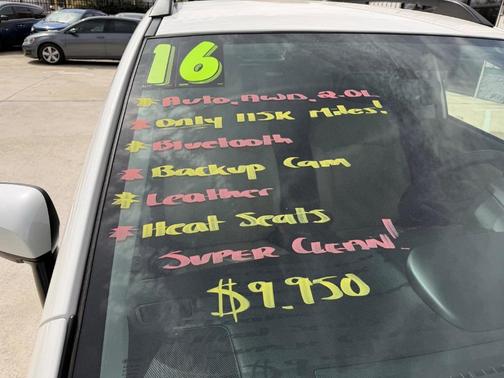 16
* Auto, AWD, 2.0L
* Only 113K Miles!
* Bluetooth
* Backup Cam
* Leather
* Heat Seats
Super Clean!
$9,950